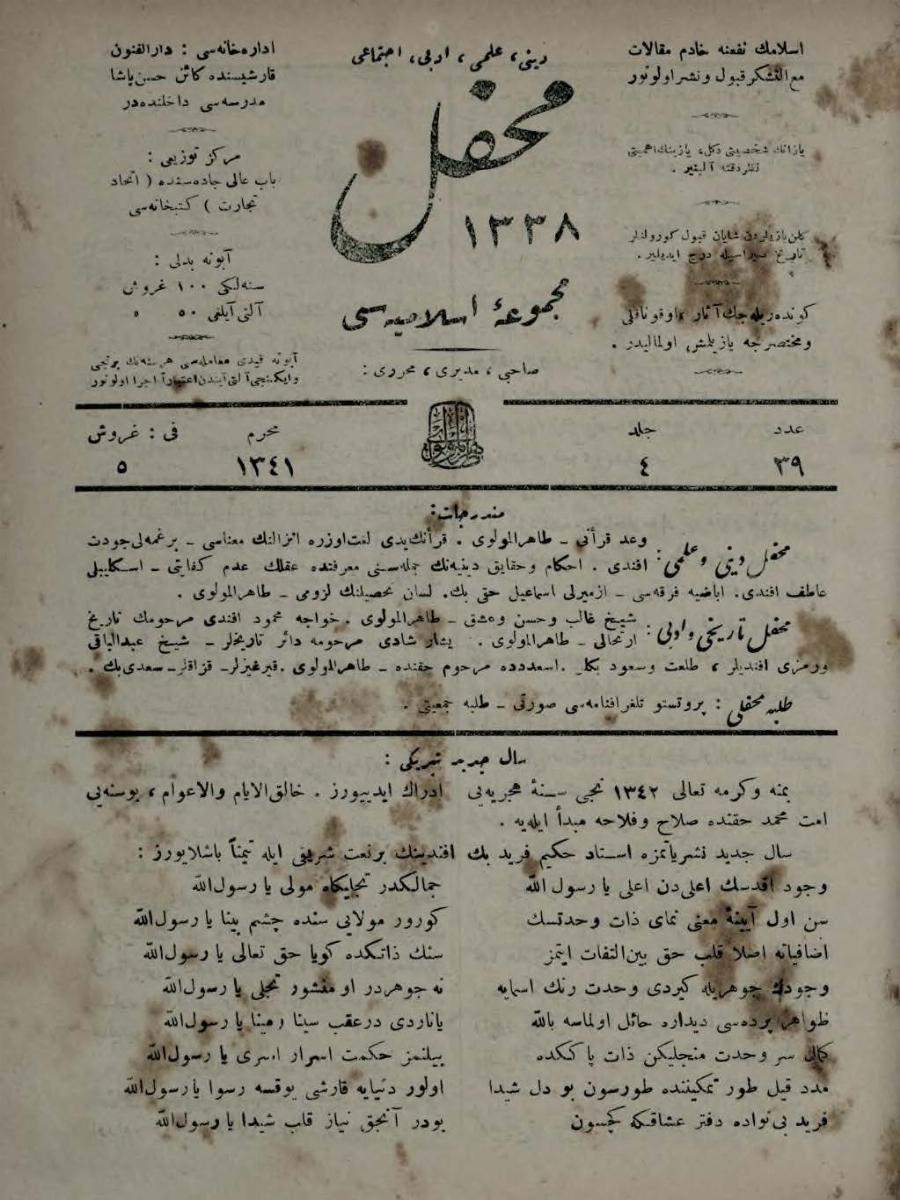 اسلامك نفعنه خادم مقالات
مع التشكر قبول و نشر اولونور
يازانك شخصيتى دكل، يازينك اهميتى
نظر دقته آلينير .
كلن يازيلردن شايان قبول كورولنلر
تاريخ صيراسيله درج ايديلير .
كوندەريله جك آثار ، اوقوناقلى
و مختصرجه يازيلمش اولماليدر .
دينى ، علمى ، ادبى ، اجتماعى
محفل
١٣٣٨
مجموعۀ اسلاميه سى
صاحبى ، مديرى ، محررى :
اداره خانه سى : دار الفنون
قارشيسنده كائن حسن پاشا
مدرسه سى داخلنده در
مركز توزيعى :
باب عالى جاده سنده ( اتحاد
تجارت ) كتبخانه سى
آبونه بدلى :
سنه لكى ١٠٠ غروش
آلتى آيلغى ٥٠ »
آبونه قيدى معامله سى هر سنه نك برنجى
وايكنجى آلتى آيندن اعتباراً اجرا اولونور
عدد جلد محرم فى : غروش
٣٩ ٤ ١٣٤١ ٥
مندرجات :
محفل دينى و علمى : وعد قرآنى ــ طاهر المولوى . قرآنك يدى لغت اوزره انزالنك معناسى ــ برغمه لى جودت
افندى . احكام و حقايق دينيه نك جمله سنى معرفتده عقلك عدم كفايتى ــ اسكليبلى
عاطف افندى. اباضيه فرقه سى ــ ازميرلى اسماعيل حقى بك. لسان تحصيلنك لزومى ــ طاهر المولوى .
محفل تاريخى و ادبى : شيخ غالب وحسن وعشق ــ طاهر المولوى . خواجه محمود افندى مرحومك تاريخ
ارتحالى ــ طاهر المولوى . يشار شادى مرحومه دائر تاريخلر ــ شيخ عبدالباقى
ورمزى افنديلر ، طلعت وسعود بكلر . اسعد دده مرحوم حقنده ــ طاهر المولوى . قيرغيزلر ــ قزاقلر ــ سعدى بك .
طلبه محفلى : پروتستو تلغرافنامه سى صورتى ــ طلبه جمعيتى .
سال جديد تبريكى :
بمنه وكرمه تعالى ١٣٤٢ نجى سنۀ هجريه يى ادراك ايدييورز . خالق الايام والاعوام ، بوسنه يى
امت محمد حقنده صلاح وفلاحه مبدأ ايليه .
سال جديد نشرياتمزه استاد حكيم فريد بك افندينك بر نعت شريفى ايله تيمناً باشلايورز :
وجود اقدسك اعلى دن اعلى يا رسول الله جمالكدر تجليكاه مولى يا رسول الله
سن اول آيينۀ معنى نماى ذات وحدتسك كورور مولايى سنده چشم بينا يا رسول الله
اضافياته اصلا قلب حق بين التفات ايتمز سنك ذاتكده كويا حق تعالى يا رسول الله
وجودك جوهريله كيردى وحدت رنك اسمايه نه جوهردر او منشور تجلى يا رسول الله
ظواهر پرده سى ديداره حائل اولماسه بالله ياناردى در عقب سينا و مينا يا رسول الله
كمالى سر وحدت منجليكن ذات پاككده بيلنمز حكمت اسرار اسرى يا رسول الله
مدد قيل طور تمكيننده طورسون بو دل شيدا اولور دنيايه قارشى يوقسه رسوا يا رسول الله
فريد بى نواده دفتر عشاقكه كچسون بودر آنجق نياز قلب شيدا يا رسول الله